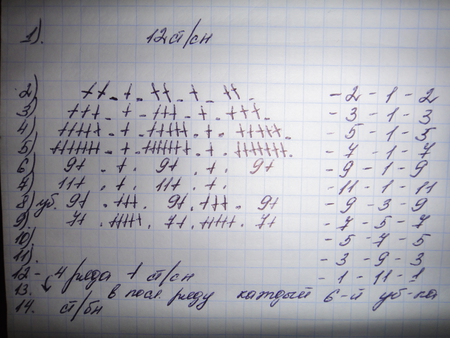 1). 12 ст/сн
2) ++ . + . ++ . + . ++ . - 2 - 1 - 2
3) +++ . + . +++ . + . +++ . - 3 - 1 - 3
4) +++++ . + . +++++ . + . +++++ . - 5 - 1 - 5
5) +++++++ . + . +++++++ . + . +++++++ . - 7 - 1 - 7
6) 9+ . + . 9+ . + . 9+ - 9 - 1 - 9
7) 11+ . + . 11+ . + . - 11 - 1 - 11
8) уб. 9+ . +++ . 9+ . +++ . 9+ - 9 - 3 - 9
9) 7+ . +++++ . 7+ . +++++ . 7+ - 7 - 5 - 7
10) - 5 - 7 - 5
11). - 3 - 9 - 3
12 - 4 ряда + ст/сн - 1 - 11 - 1
13. в посл. ряду каждый 6-й уб-ка
14. ст/бн